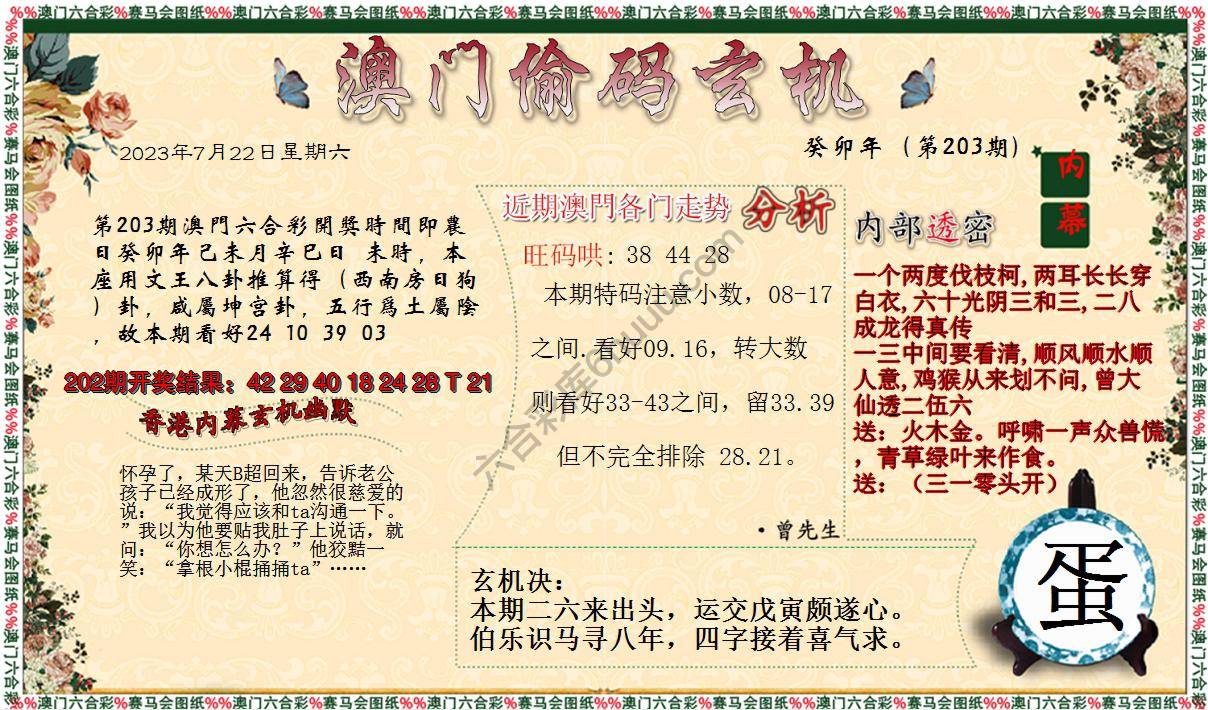 %%澳门六合彩%赛马会图纸%%澳门六合彩%赛马会图纸%%澳门六合彩%赛马会图纸%%澳门六合彩%赛马会图纸%%澳门六合彩%赛马会图纸%%澳门六合彩%赛马会图纸%%
澳门偷码玄机
2023年7月22日星期六
癸卯年（第203期）
内幕
第203期澳門六合彩開獎時間即農
日癸卯年己未月辛巳日 未時，本
座用文王八卦推算得（西南房日狗
）卦，咸屬坤宫卦，五行爲土屬陰
，故本期看好24 10 39 03
202期开奖结果：42 29 40 18 24 28 T 21
香港内幕玄机幽默
怀孕了，某天B超回来，告诉老公
孩子已经成形了，他忽然很慈爱的
说：“我觉得应该和ta沟通一下。
”我以为他要贴我肚子上说话，就
问：“你想怎么办？”他狡黠一
笑：“拿根小棍捅捅ta”……
近期澳門各门走势 分析
旺码哄: 38 44 28
本期特码注意小数，08-17
之间.看好09.16，转大数
则看好33-43之间，留33.39
但不完全排除 28.21。
·曾先生
内部透密
一个两度伐枝柯,两耳长长穿
白衣,六十光阴三和三,二八
成龙得真传
一三中间要看清,顺风顺水顺
人意,鸡猴从来划不问,曾大
仙透二伍六
送：火木金。呼啸一声众兽慌
，青草绿叶来作食。
送：（三一零头开）
玄机决：
本期二六来出头，运交戊寅颇遂心。
伯乐识马寻八年，四字接着喜气求。
蛋
%%澳门六合彩%赛马会图纸%%澳门六合彩%赛马会图纸%%澳门六合彩%赛马会图纸%%澳门六合彩%赛马会图纸%%澳门六合彩%赛马会图纸%%澳门六合彩%赛马会图纸%%